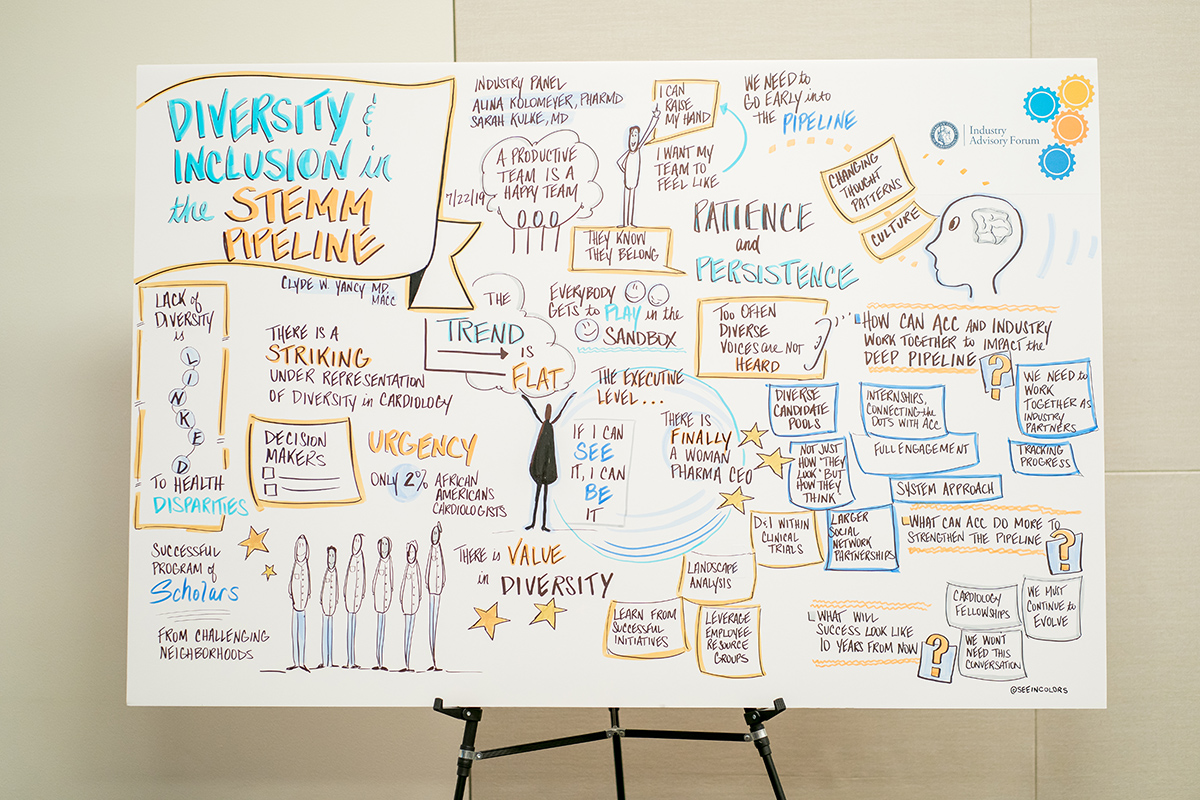 DIVERSITY &
INCLUSION in
the STEMM
PIPELINE
CLYDE W. YANCY MD.
MACC
INDUSTRY PANEL
ALINA KOLOMEYER, PHARMD
SARAH KULKE, MD
7/22/19
A PRODUCTIVE
TEAM IS A
HAPPY TEAM
I CAN
RAISE
MY HAND
I WANT MY
TEAM TO
FEEL LIKE
THEY KNOW
THEY BELONG
WE NEED to
GO EARLY into
THE PIPELINE
Industry
Advisory Forum
CHANGING
THOUGHT
PATTERNS
CULTURE
PATIENCE
and
PERSISTENCE
LACK of
DIVERSITY
is
LINKED
TO HEALTH
DISPARITIES
THERE IS A
STRIKING
UNDER REPRESENTATION
OF DIVERSITY in CARDIOLOGY
THE
TREND
IS
FLAT
EVERYBODY
GETS to PLAY in the
SANDBOX
TOO OFTEN
DIVERSE
VOICES are NOT
HEARD
DECISION
MAKERS
URGENCY
ONLY 2% AFRICAN
AMERICANS
CARDIOLOGISTS
THE EXECUTIVE
LEVEL...
IF I CAN
SEE
IT, I CAN
BE
IT
THERE IS
FINALLY
A WOMAN
PHARMA CEO
SUCCESSFUL
PROGRAM of
Scholars
FROM CHALLENGING
NEIGHBORHOODS
THERE IS VALUE
in DIVERSITY
HOW CAN ACC AND INDUSTRY
WORK TOGETHER to IMPACT the
DEEP PIPELINE
?
DIVERSE
CANDIDATE
POOLS
INTERNSHIPS,
CONNECTING the
DOTS WITH ACC
WE NEED to
WORK
TOGETHER AS
INDUSTRY
PARTNERS
NOT JUST
HOW "THEY
LOOK" BUT
HOW THEY
THINK
FULL ENGAGEMENT
TRACKING
PROGRESS
SYSTEM APPROACH
D&I WITHIN
CLINICAL
TRIALS
LARGER
SOCIAL
NETWORK
PARTNERSHIPS
WHAT CAN ACC DO MORE TO
STRENGTHEN THE PIPELINE
?
LANDSCAPE
ANALYSIS
LEARN FROM
SUCCESSFUL
INITIATIVES
LEVERAGE
EMPLOYEE
RESOURCE
GROUPS
WHAT WILL
SUCCESS LOOK LIKE
10 YEARS FROM NOW
?
CARDIOLOGY
FELLOWSHIPS
WE MUST
CONTINUE to
EVOLVE
WE WONT
NEED THIS
CONVERSATION
@SEEINCOLORS